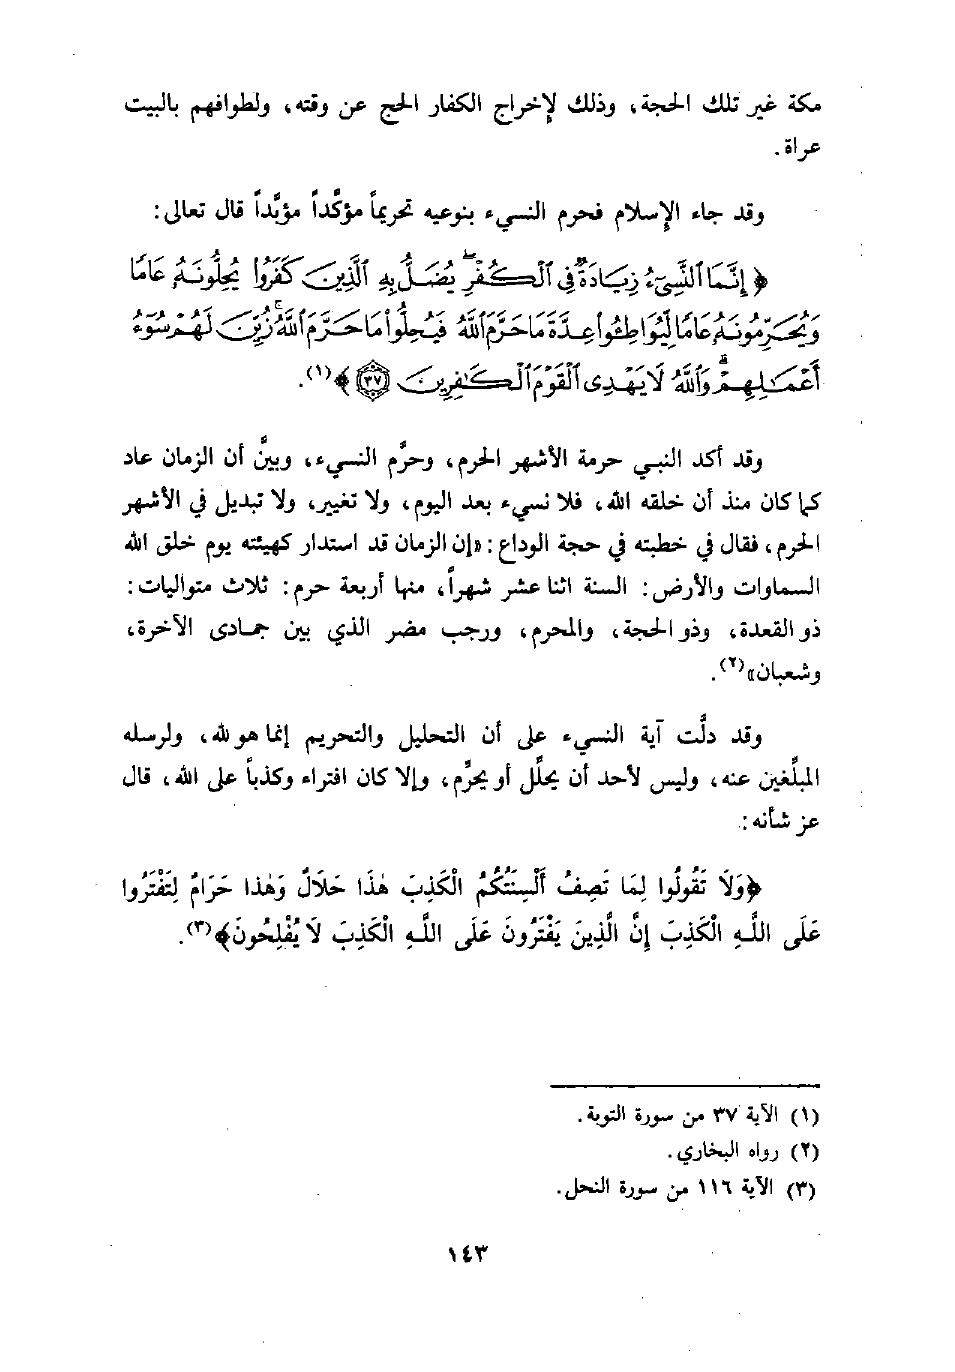 مكة غير تلك الحجة، وذلك لإخراج الكفار الحج عن وقته، ولطوافهم بالبيت
عراة.
وقد جاء الإسلام فحرم النسيء بنوعيه تحريماً مؤكَّداً مؤبَّداً قال تعالى:
﴿إِنَّمَا ٱلنَّسِيٓءُ زِيَادَةٌ فِي ٱلْكُفْرِ ۖ يُضَلُّ بِهِ ٱلَّذِينَ كَفَرُوا۟ يُحِلُّونَهُۥ عَامًا
وَيُحَرِّمُونَهُۥ عَامًا لِّيُوَاطِـُٔوا۟ عِدَّةَ مَا حَرَّمَ ٱللَّهُ فَيُحِلُّوا۟ مَا حَرَّمَ ٱللَّهُ ۚ زُيِّنَ لَهُمْ سُوٓءُ
أَعْمَـٰلِهِمْ ۗ وَٱللَّهُ لَا يَهْدِى ٱلْقَوْمَ ٱلْكَـٰفِرِينَ ٣٧﴾(١).
وقد أكد النبي حرمة الأشهر الحرم، وحرَّم النسيء، وبيَّن أن الزمان عاد
كما كان منذ أن خلقه الله، فلا نسيء بعد اليوم، ولا تغيير، ولا تبديل في الأشهر
الحرم، فقال في خطبته في حجة الوداع: «إن الزمان قد استدار كهيئته يوم خلق الله
السماوات والأرض: السنة اثنا عشر شهراً، منها أربعة حرم: ثلاث متواليات:
ذو القعدة، وذو الحجة، والمحرم، ورجب مضر الذي بين جمادى الآخرة،
وشعبان»(٢).
وقد دلَّت آية النسيء على أن التحليل والتحريم إنما هو لله، ولرسله
المبلِّغين عنه، وليس لأحد أن يحلِّل أو يحرِّم، وإلا كان افتراء وكذباً على الله، قال
عز شأنه:
﴿وَلَا تَقُولُوا لِمَا تَصِفُ أَلْسِنَتُكُمُ الْكَذِبَ هٰذَا حَلَالٌ وَهٰذا حَرَامٌ لِتَفْتَرُوا
عَلَى اللَّهِ الْكَذِبَ إِنَّ الَّذِينَ يَفْتَرُونَ عَلَى اللَّهِ الْكَذِبَ لَا يُفْلِحُونَ﴾(٣).
(١) الآية ٣٧ من سورة التوبة.
(٢) رواه البخاري.
(٣) الآية ١١٦ من سورة النحل.
١٤٣